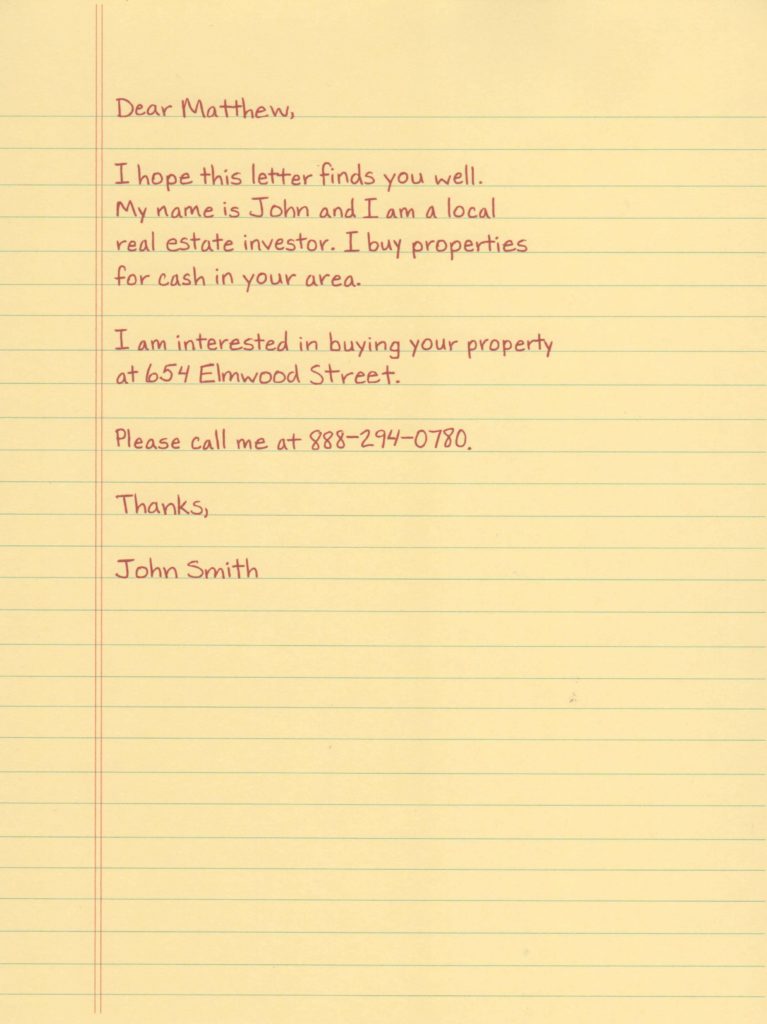 Dear Matthew,
I hope this letter finds you well.
My name is John and I am a local
real estate investor. I buy properties
for cash in your area.
I am interested in buying your property
at 654 Elmwood Street.
Please call me at 888-294-0780.
Thanks,
John Smith